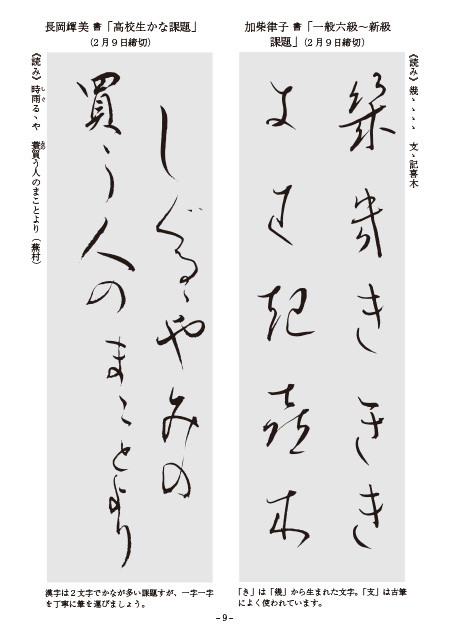 加柴律子 書「一般六級～新級
課題」(2月9日締切)
《読み》 幾ゝゝゝゝ 支ゝ記喜木
幾幾ききき
支支記喜木
「き」は「幾」から生まれた文字。「支」は古筆
によく使われています。
長岡輝美 書「高校生かな課題」
(2月9日締切)
しぐるゝやみの
買う人のまことより
《読み》 時雨るゝや 蓑買う人のまことより (蕪村)
漢字は2文字でかなが多い課題すが、一字一字
を丁寧に筆を運びましょう。
- 9 -